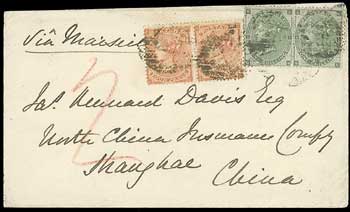 Via Marseil
Jas. Kennard Davis Esq
North China Insurance Compy
Shanghae
China